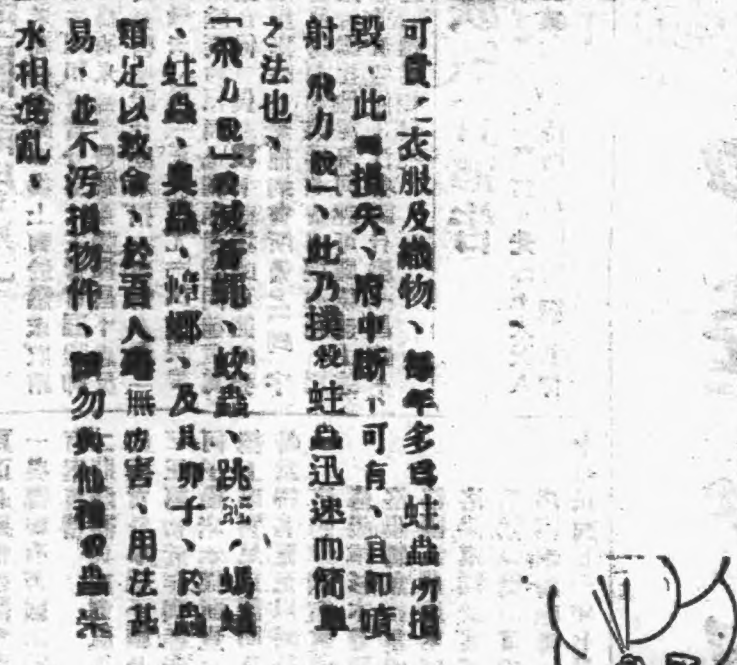 可貴之衣服及織物、每年多爲蛀蟲所損
毀、此損失、府中斷不可有、且卽噴
射「飛力脫」、此乃撲殺蛀蟲迅速而簡單
之法也、
「飛力脫」殺滅蒼蠅、蚊蟲、跳蝨、螞蟻
、蛀蟲、臭蟲、蟑螂、及其卵子、於蟲
類足以致命、於吾人毫無妨害、用法甚
易、並不污損物件、請勿與他種殺蟲藥
水相混亂、